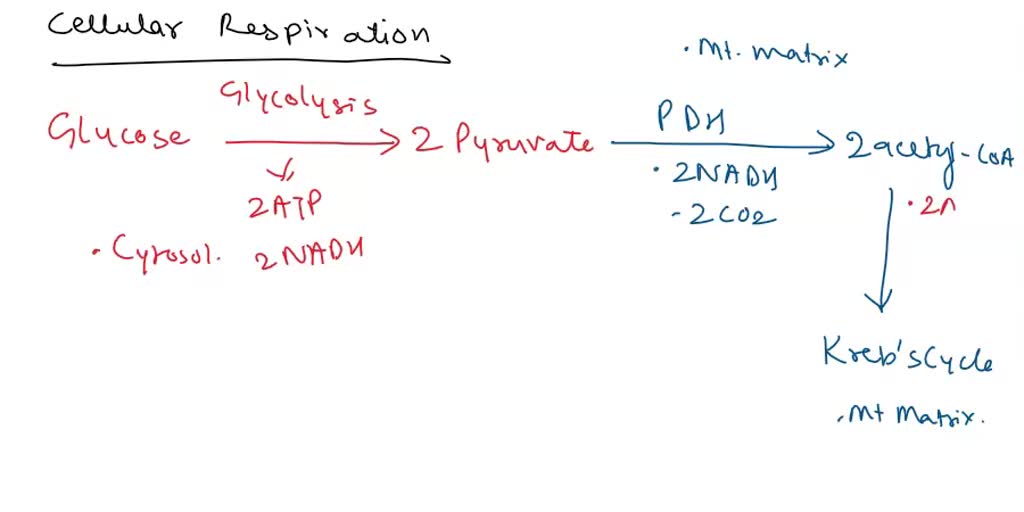 Cellular Respiration
Glucose
Glycolysis
2ATP
2NADH
. Cytosol.
2 Pyruvate
. Mt. matrix
PDH
. 2NADH
- 2CO2
2 acety-CoA
. 2A
Kreb's Cycle
. Mt Matrix.